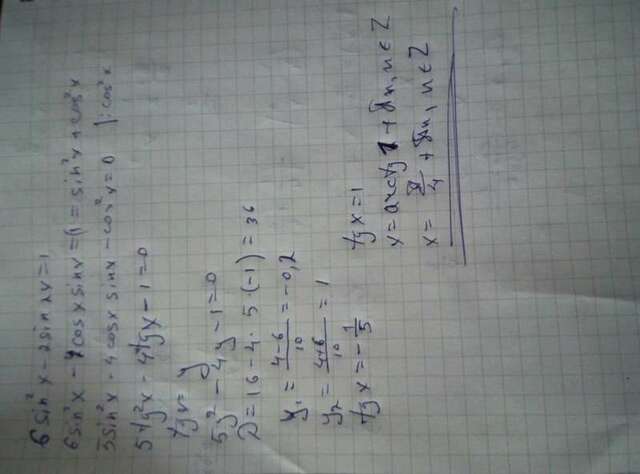 6 sin²x - 2 sin 2x = 1
6 sin²x - 4 cos x sin x = (1 = sin²x + cos²x
5 sin²x - 4 cos x sin x - cos²x = 0 |: cos²x
5 tg²x - 4 tg x - 1 = 0
tg x = y
5y² - 4y - 1 = 0
D = 16 - 4 · 5 · (-1) = 36
y₁ = (4-6)/10 = -0,2
y₂ = (4+6)/10 = 1
tg x = -1/5
tg x = 1
x = arctg 1 + πn, n ∈ Z
x = π/4 + πn, n ∈ Z